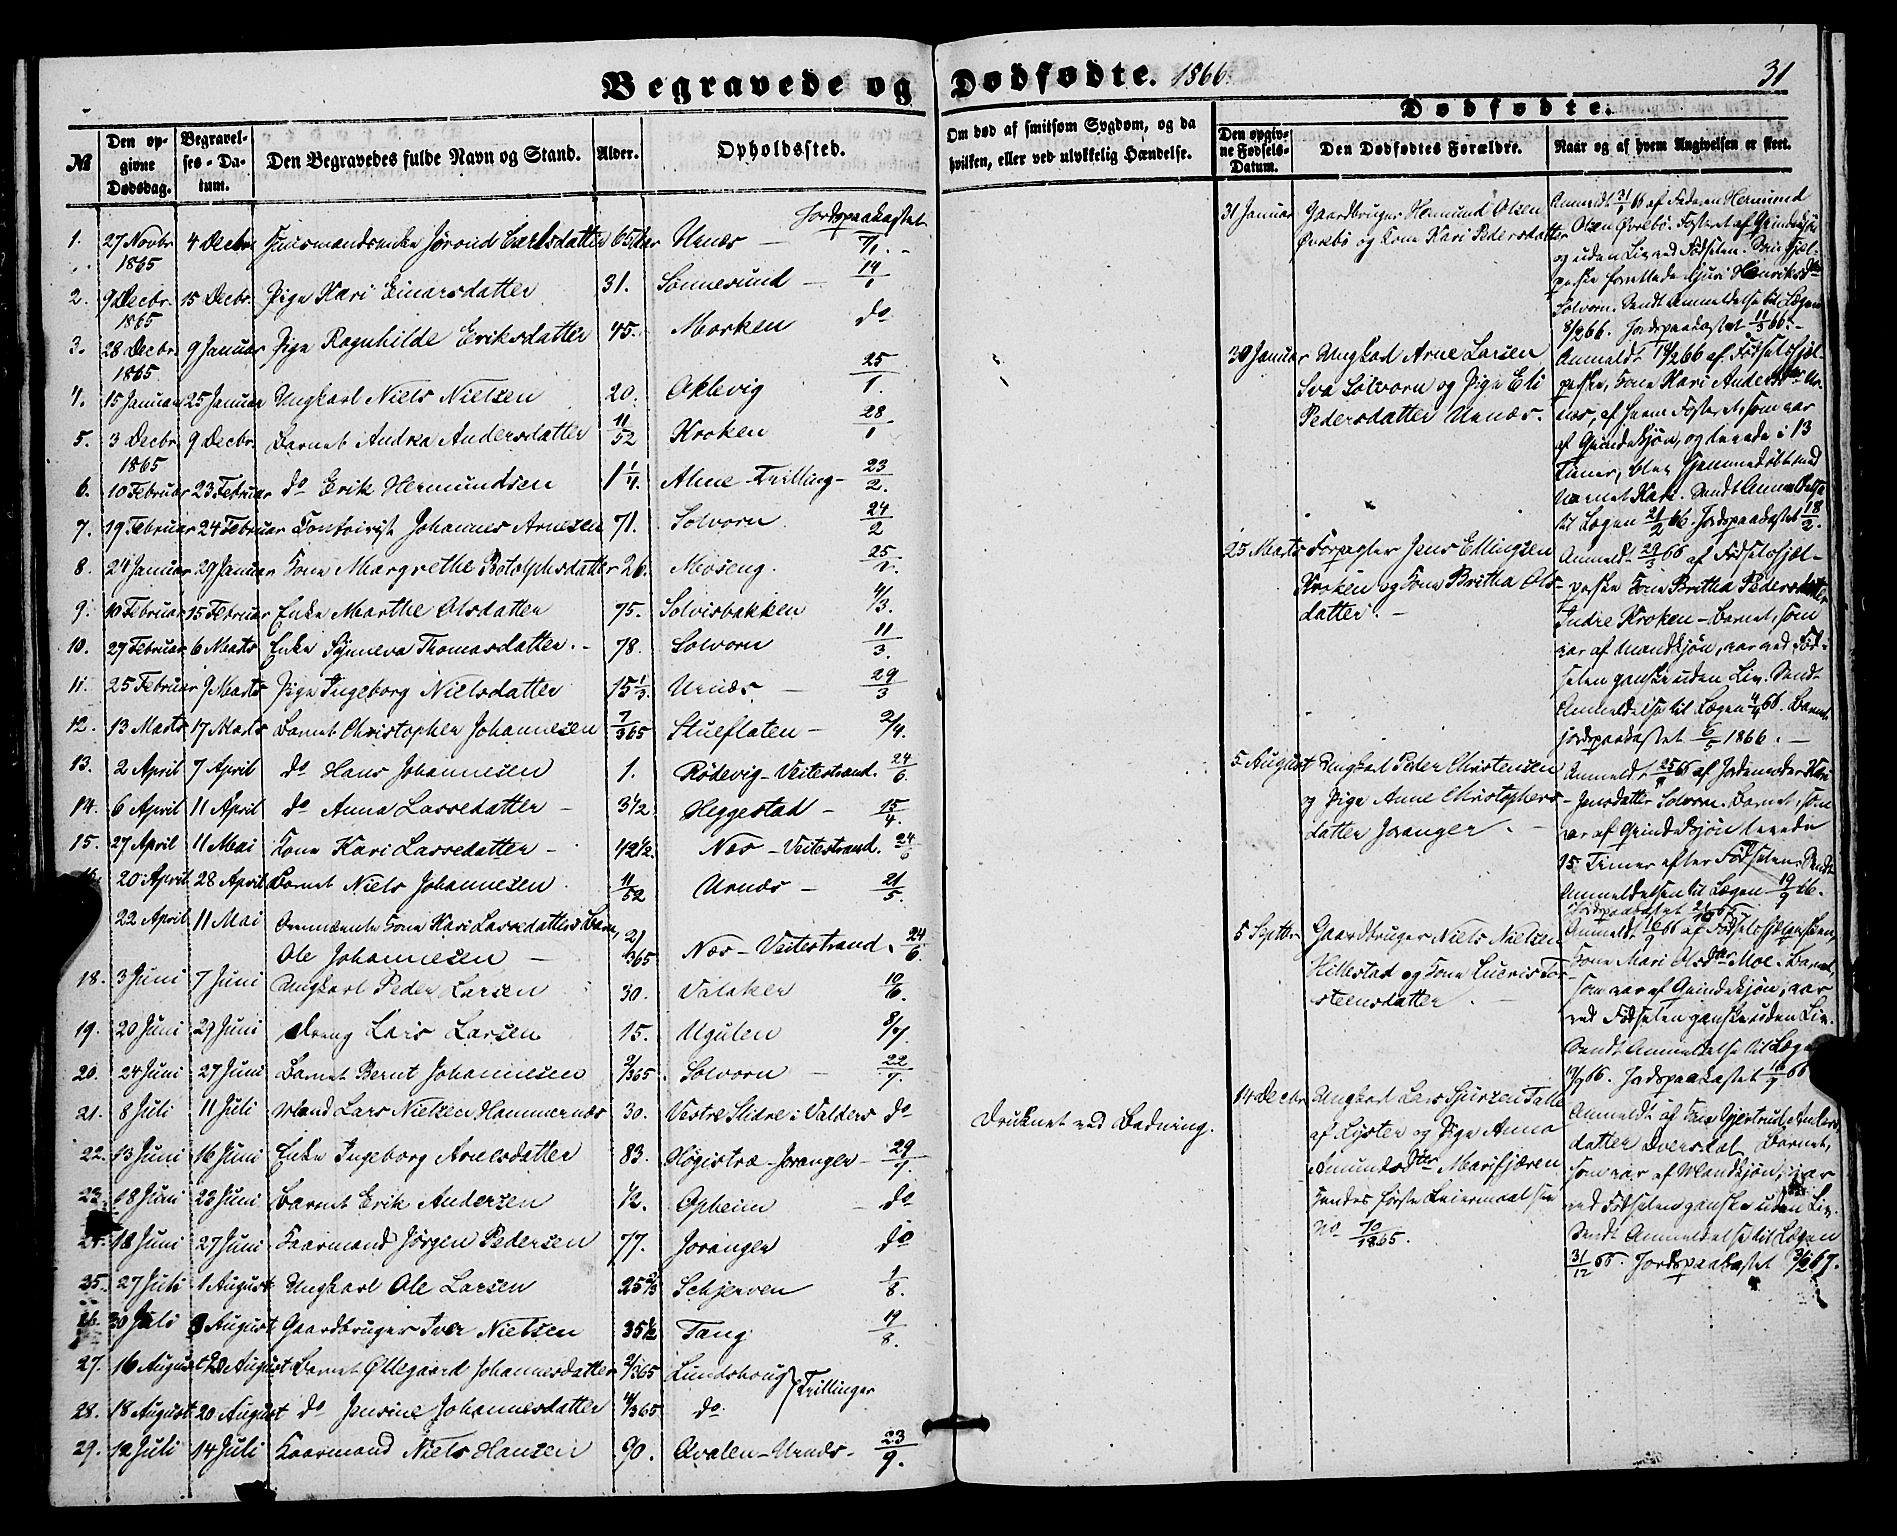 Begravede og Dødfødte. 1866. 31
№ Den opgivne Dødsdag. Begravelses-Datum. Den Begravedes fulde Navn og Stand. Alder. Opholdssted.
Om død af smitsom Sygdom, og da hvilken, eller ved ulykkelig Hændelse.
Dødfødte.
Den opgivne Fødsels-Datum. Den Dødfødtes Forældre. Naar og af hvem Angivelsen er skeet.
Jordspaakastet
1. 27 Novbr 1865 4 Decbr Jørond Carlsdatter 65 Urnæs
2. 9 Decbr. 1865 15 Decbr. Pige Kari Einarsdatter 31. Sønnesund 14/1
3. 28 Decbr 1865 9 Januar Pige Ragnhilde Eriksdatter 45. Morken do
4. 15 Januar 25 Januar Ungkarl Niels Nielsen 20. Oklevig 25/1.
5. 3 Decbr 1865 9 Decbr. Barnet Andrea Andersdatter 11/52 Kroken 28/1
6. 10 Februar 23 Februar do Erik Hermundsen 1 1/4. Alme - Tvilling - 23/2.
7. 19 Februar 24 Februar Johannes Arnesen 71. Solvorn 24/2
8. 24 Januar 29 Januar Kone Margrethe Botolphsdatter 26. Moseng. 25/2.
9. 10 Februar 15 Februar Enke Marthe Olsdatter 75. Solvisbakken 4/3.
10. 27 Februar 6 Marts Enke Synneva Thomasdatter. 78. Solvorn 11/3.
11. 25 Februar 9 Marts Pige Ingeborg Nielsdatter 15 1/3. Urnæs - 29/3
12. 13 Marts 17 Marts Barnet Christopher Johannesen 7/365 Stueflaten - 2/4.
13. 2 April 7 April do Hans Johannesen 1. Rødevig - Veitestrand. 24/6.
14. 6 April 11 April do Anna Lassedatter - 3 1/2. Heggestad - 15/4.
15. 27 April 11 Mai Kone Kari Lassedatter - 42 1/2. Næs - Veitestrand. 24/6
16. 20 April 28 April Barnet Niels Johannesen 11/52 Urnæs - 21/5.
22 April 11 Mai Ovennævnte Kone Kari Lassedatters Barn,
Ole Johannesen - 2/365 Næs - Veitestrand. 24/6.
18. 3 Juni 7 Juni Ungkarl Peder Larsen 30. Valaker 10/6.
19. 20 Juni 27 Juni Dreng Lars Larsen 15. Ugulen 8/7
20. 24 Juni 27 Juni Barnet Bernt Johannesen 2/365. Solvorn - 22/7.
21. 8 Juli 11 Juli Mand Lars Nielsen Hammernæs 30. Vestre Slidre i Valders do Druknet ved Badning.
22. 13 Juni 16 Juni Enke Ingeborg Arnesdatter 83. Høgistræ - Joranger - 29/7.
23. 18 Juni 23 Juni Barnet Erik Andersen 1/2. Opheim - do
24. 18 Juni 27 Juni Kaarmand Jørgen Pedersen 77. Joranger do
25. 27 Juli 1 August Ungkarl Ole Larsen 25 2/3 Schjerven 1/8.
26. 30 Juli 3 August Gaardbruger Iver Nielsen 35 1/2 Tang 19/8.
27. 16 August Barnet Øllegaard Johannesdatter 2/365 Lundshoug } Tvillinger
28. 18 August 20 August do Jensine Johannesdatter 4/365 do.
29. 12 Juli 14 Juli Kaarmand Niels Hansen 90. Qvalen - Urnæs - 23/9.
31 Januar Gaardbruger Hermund Olsen
Øvrebø og Kone Kari Pedersdatter
Anmeldt 31/1 66 af Faderen Hermund
Olsen Øvrebø. Fosteret af Qvindekjøn
og uden Liv ved Fødselen.
Solvorn. Sendt Anmeldelse til Lægen
8/2 66. Jordspaakastet 11/3 66.
30 Januar Ungkarl Arne Larsen
Eva Solvorn og Pige Eli
Pedersdatter Urnæs.
Anmeldt 19/2 66 af Fødselshjæl-
perske, Kone Kari Andersdter Ur-
næs, af hvem Fosteret, som var
af Qvindekjøn, og levede i 13
Timer, blev hjemmedøbt med
Navnet Kari. Sendt Anmeldelse
til Lægen 21/2 66. Jordspaakastet 18/2.
25 Marts Forpagter Jens Ellingsen
Kroken og Kone Britha Ols-
datter. -
Anmeldt 29/3 66 af Fødselshjæl-
perske Kone Brittha Pedersdatter
Indre Kroken - Barnet, som
var af Mandkjøn, var ved Fød-
selen ganske uden Liv. Sendt
Anmeldelse til Lægen 4/4 66. Barnet
jordspaakastet 6/5 1866. -
5 August Ungkarl Peder Christensen
og Pige Anne Christophers-
datter Joranger. -
Anmeldt 25/8 66 af Jordemoder Kari
Jensdatter Solvorn. Barnet, som
var af Qvindekjøn levede
15 Timer efter Fødselen. Sendt
Anmeldelsen til Lægen 19/9 66.
Jordspaakastet
5 Septbr. Gaardbruger Niels Nielsen
Hillestad og Kone Lucris Tor-
steensdatter -
Anmeldt 16/9 66 af Fødselshjælpersken,
Kone Mari Olsdter Moe. Barnet,
som var af Qvindekjøn, var
ved Fødselen ganske uden Liv.
Sendt Anmeldelse til Lægen
19/9 66. Jordspaakastet 16/9 66
14 Decbr. Ungkarl Lars Sjursen Talle
af Lyster og Pige Anna
Amundsdter Marifjæren
hendes første Leiermaal see
No 10/1865.
Anmeldt af Kone Gjertrud Anders-
datter Dversdal. Barnet,
som var af Mandkjøn, var
ved Fødselen ganske uden Liv.
Sendt Anmeldelse til Lægen
31/12 66. Jordspaakastet 3/2 67.